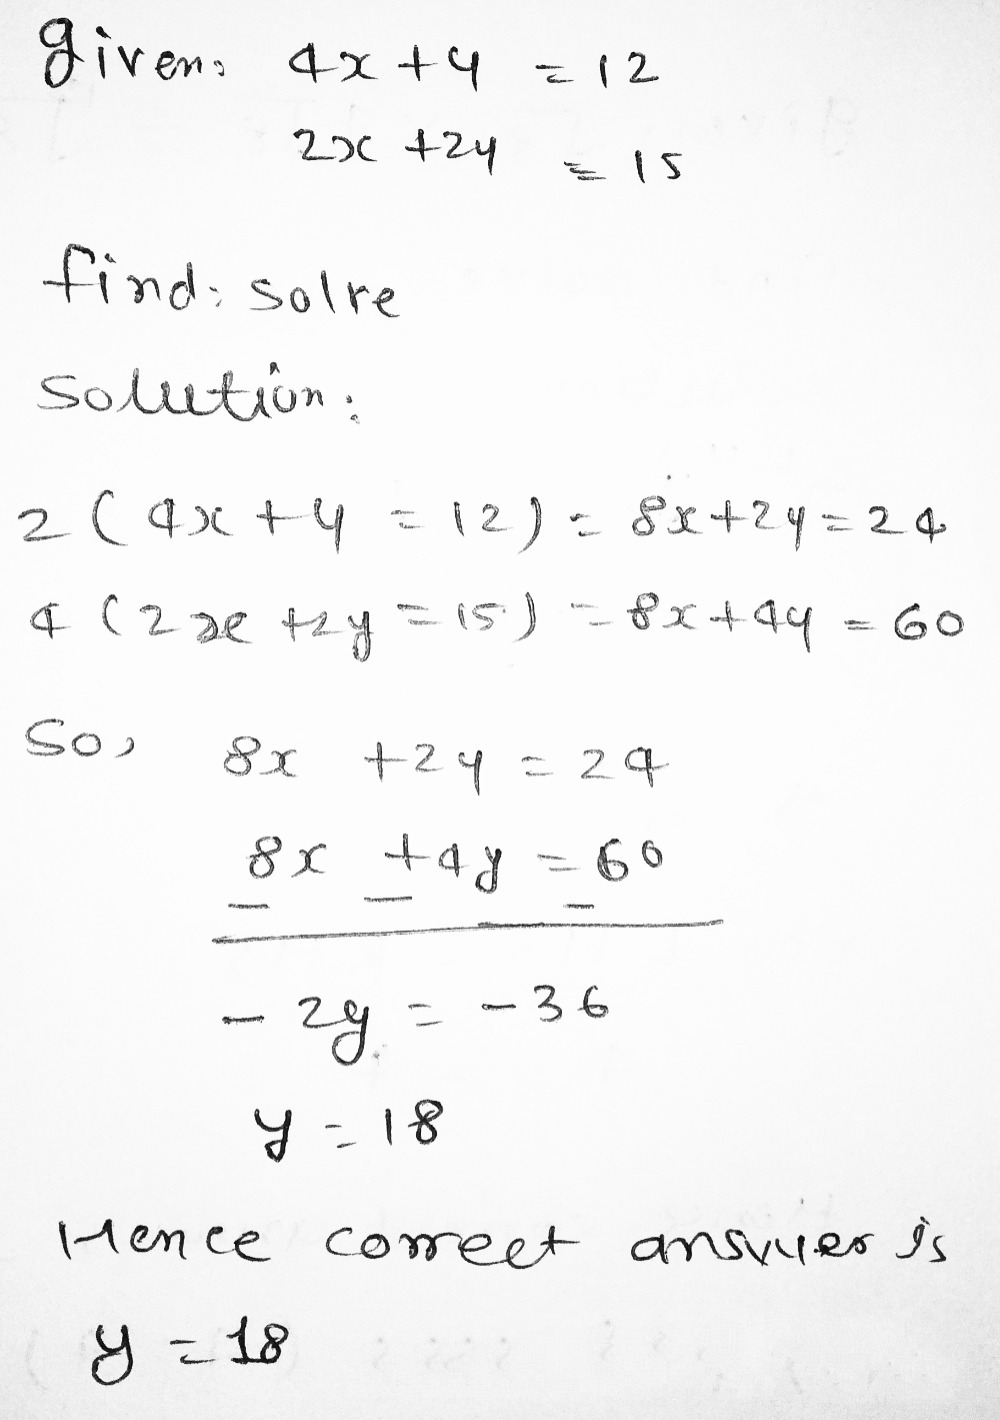 given: 4x + y = 12
2x + 2y = 15
find: solve
solution:
2 ( 4x + y = 12 ) = 8x + 2y = 24
4 ( 2x + 2y = 15 ) = 8x + 4y = 60
So, 8x + 2y = 24
8x + 4y = 60
- 2y = - 36
y = 18
Hence correct answer is
y = 18